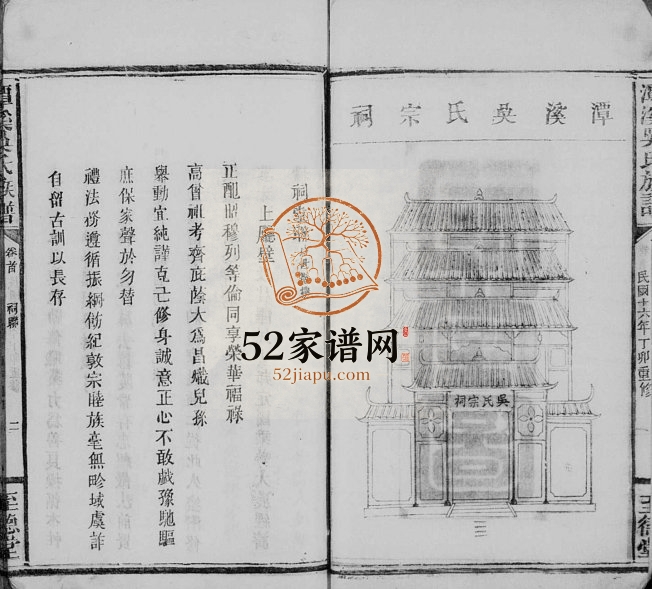 潭溪吳氏族譜
民國十六年丁卯重修
一
至德堂
潭溪吳氏宗祠
吳氏宗祠
祠
上廳壁
正配昭穆列等倫同享榮華福祿
高曾祖考齊庇蔭大爲昌熾兒孫
舉動宜純謹克己修身誠意正心不敢戲豫馳驅
庶保家聲於勿替
禮法務遵循振綱飭紀敦宗睦族毫無畛域虞詐
自留古訓以長存
潭溪吳氏族譜
卷首
祠聯
二
至德堂
52家谱网
52jiapu.com